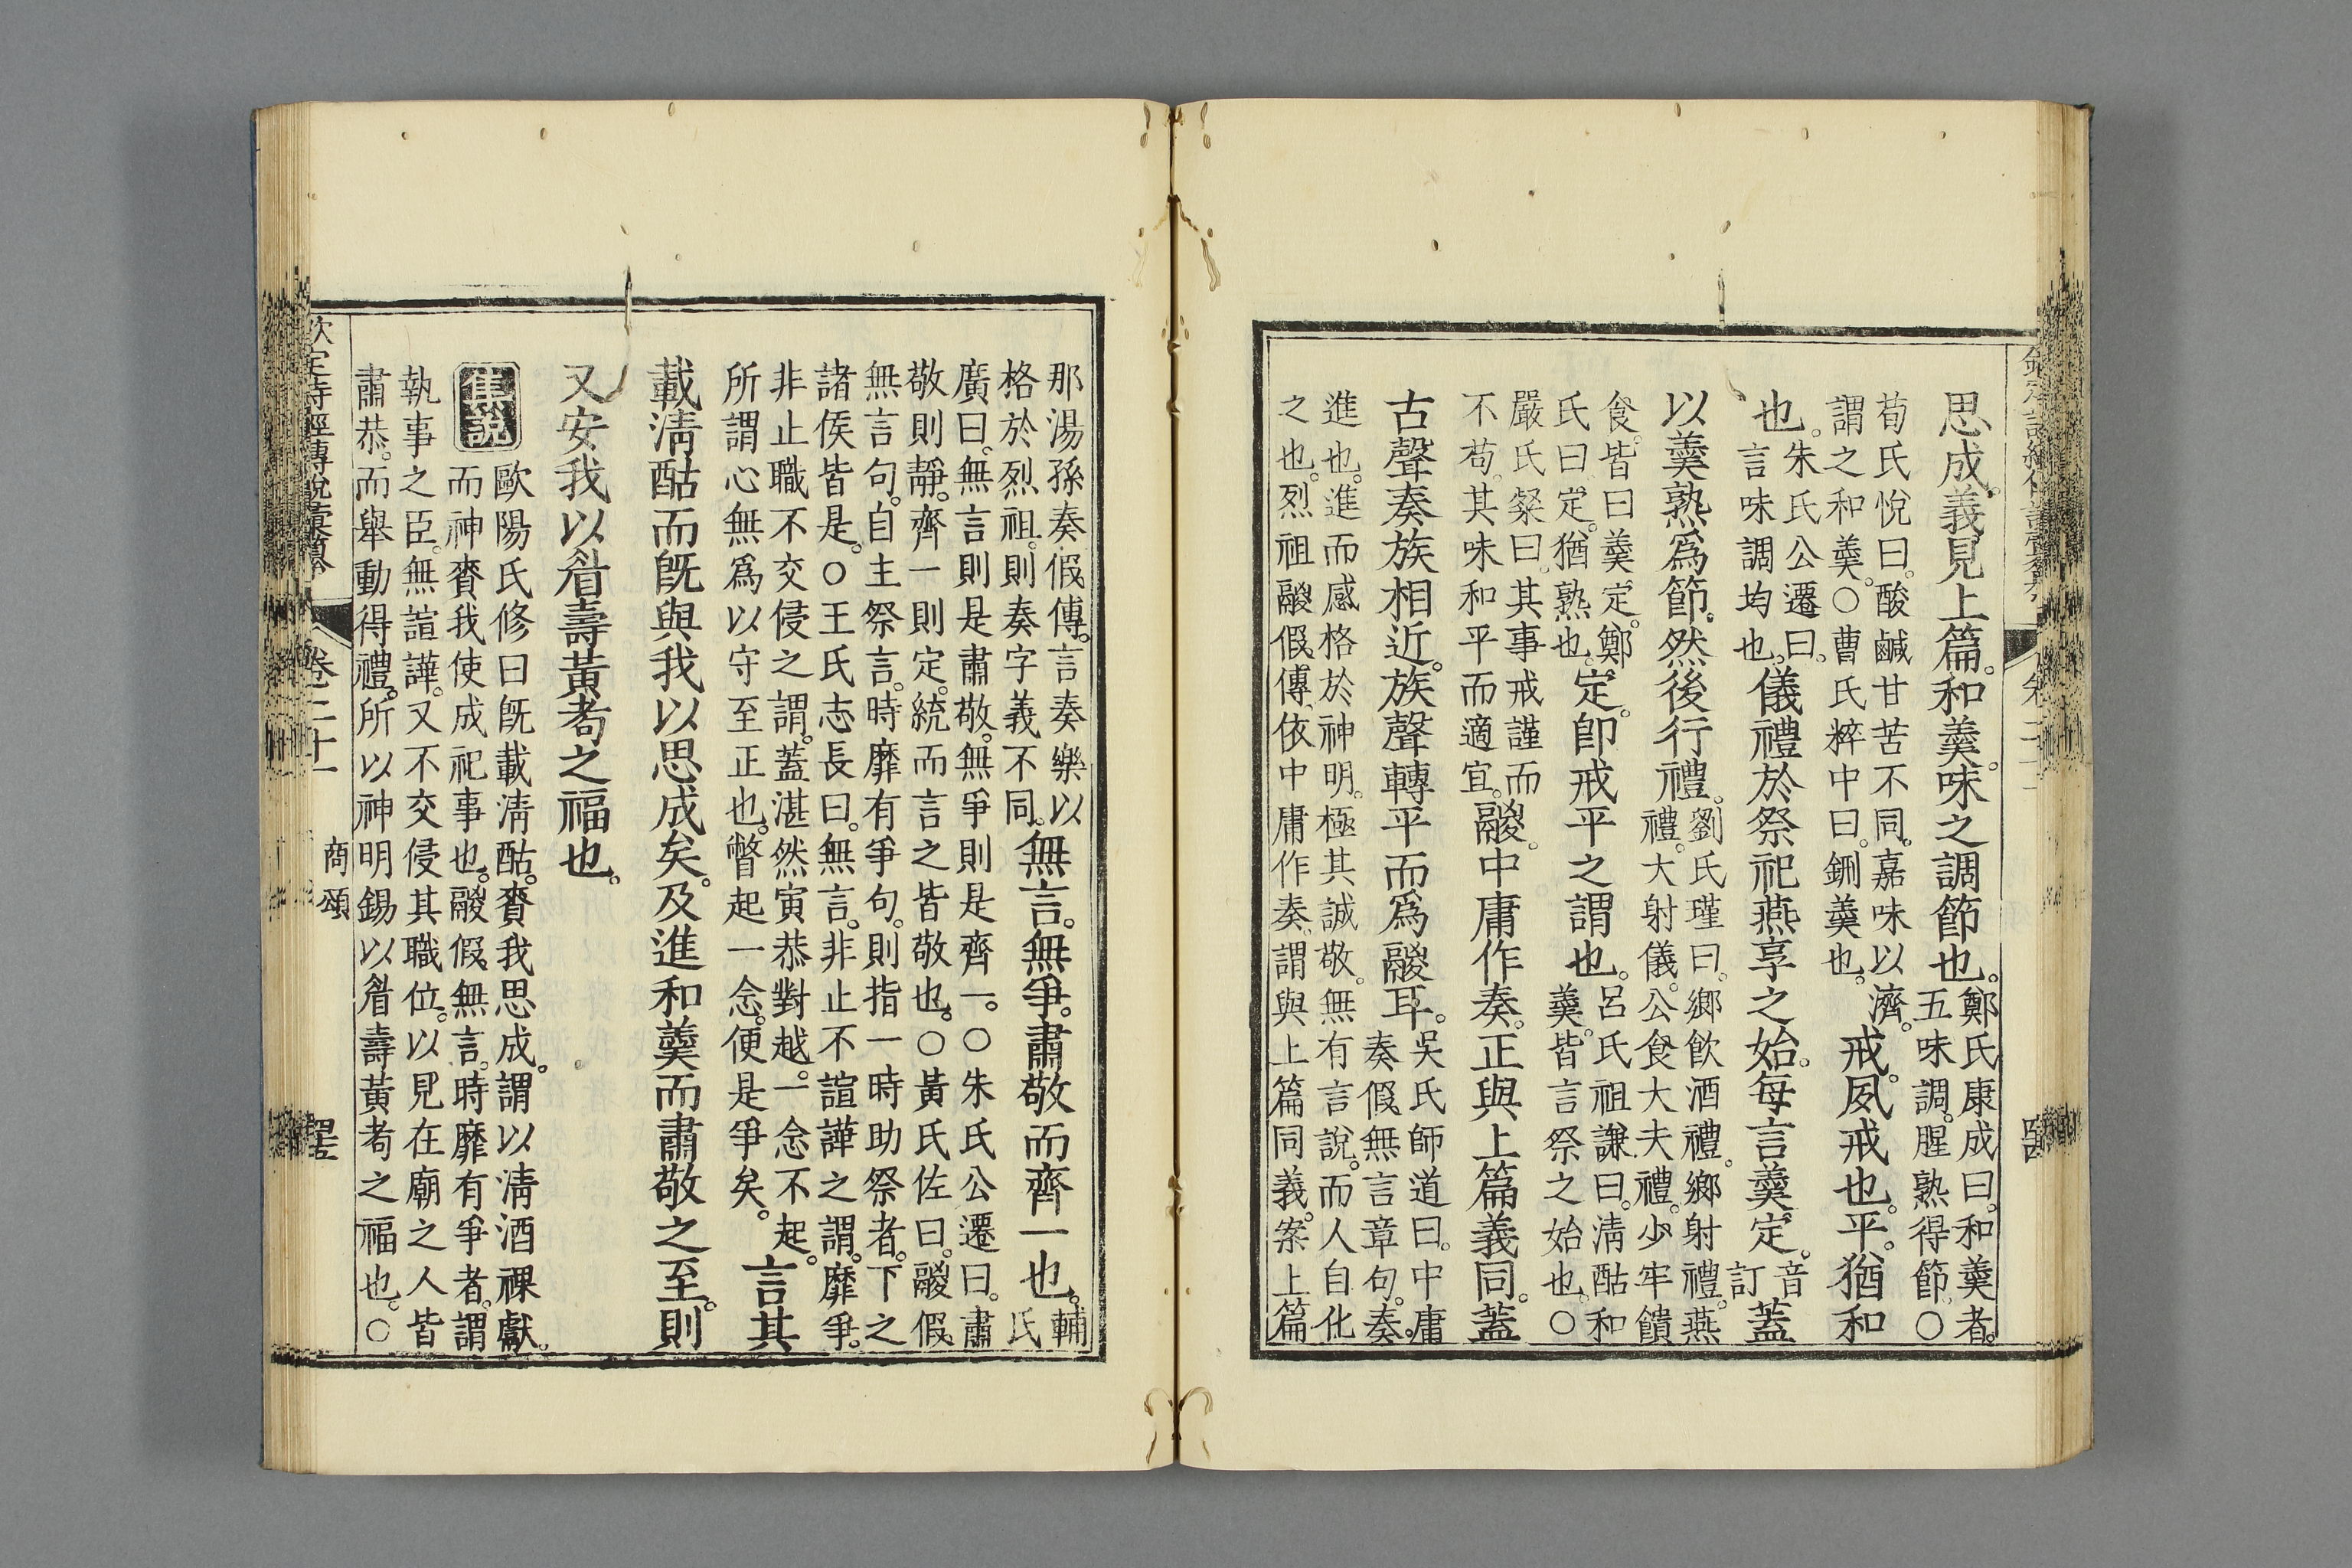 思成。義見上篇。和羹。味之調節也。鄭氏康成曰。和羹者。五味調。腥熟得節。○
荀氏悅曰。酸鹹甘苦不同。嘉味以濟。謂之和羹。○曹氏粹中曰。鉶羹也。戒。夙戒也。平。猶和
也。朱氏公遷曰。言味調均也。儀禮於祭祀燕享之始。每言羹定。音訂蓋
以羹熟爲節。然後行禮。劉氏瑾曰。鄉飮酒禮。鄉射禮。燕禮。大射儀。公食大夫禮。少牢饋
食。皆曰羹定。鄭氏曰。定。猶熟也。定。卽戒平之謂也。呂氏祖謙曰。淸酤和羹。皆言祭之始也。○
嚴氏粲曰。其事戒謹而不苟。其味和平而適宜。鬷。中庸作奏。正與上篇義同。蓋
古聲奏族相近。族聲轉平而爲鬷耳。吳氏師道曰。中庸奏假無言章句。奏。
進也。進而感格於神明。極其誠敬。無有言說。而人自化之也。烈祖鬷假傳。依中庸作奏。謂與上篇同義。案上篇
那湯孫奏假傳。言奏樂以格於烈祖。則奏字義不同。無言。無爭。肅敬而齊一也。輔氏
廣曰。無言則是肅敬。無爭則是齊一。○朱氏公遷曰。肅敬則靜。齊一則定。統而言之皆敬也。○黃氏佐曰。鬷假
無言句。自主祭言。時靡有爭句。則指一時助祭者。下之諸侯皆是。○王氏志長曰。無言。非止不諠譁之謂。靡爭。
非止職不交侵之謂。蓋湛然寅恭對越。一念不起。所謂心無爲以守至正也。瞥起一念。便是爭矣。言其
載淸酤而旣與我以思成矣。及進和羹而肅敬之至。則
又安我以眉壽黃耇之福也。
集說 歐陽氏修曰旣載淸酤。賚我思成。謂以淸酒祼獻。而神賚我使成祀事也。鬷假無言。時靡有爭者。謂
執事之臣。無諠譁。又不交侵其職位。以見在廟之人皆肅恭。而舉動得禮。所以神明錫以眉壽黃耇之福也。○
欽定詩經傳說彙纂 卷二十一 商頌